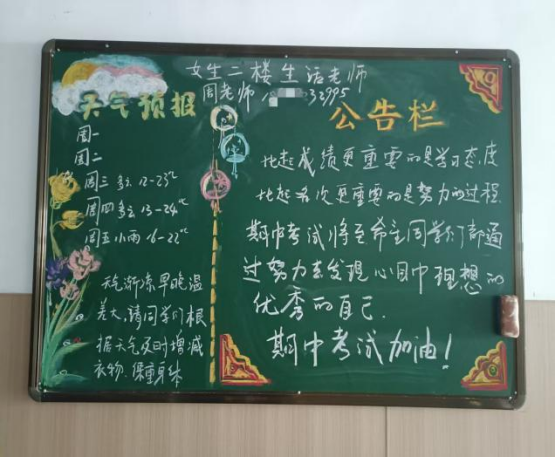 女生二楼生活老师
周老师 32995
天气预报
周一
周二
周三 多云 12-23℃
周四 多云 13-24℃
周五 小雨 16-22℃
天气渐凉早晚温
差大,请同学们根
据天气及时增减
衣物.保重身体
公告栏
比起成绩更重要的是学习态度
比起名次更重要的是努力的过程.
期中考试将至希望同学们都通
过努力去发现心目中理想的
优秀的自己.
期中考试加油!